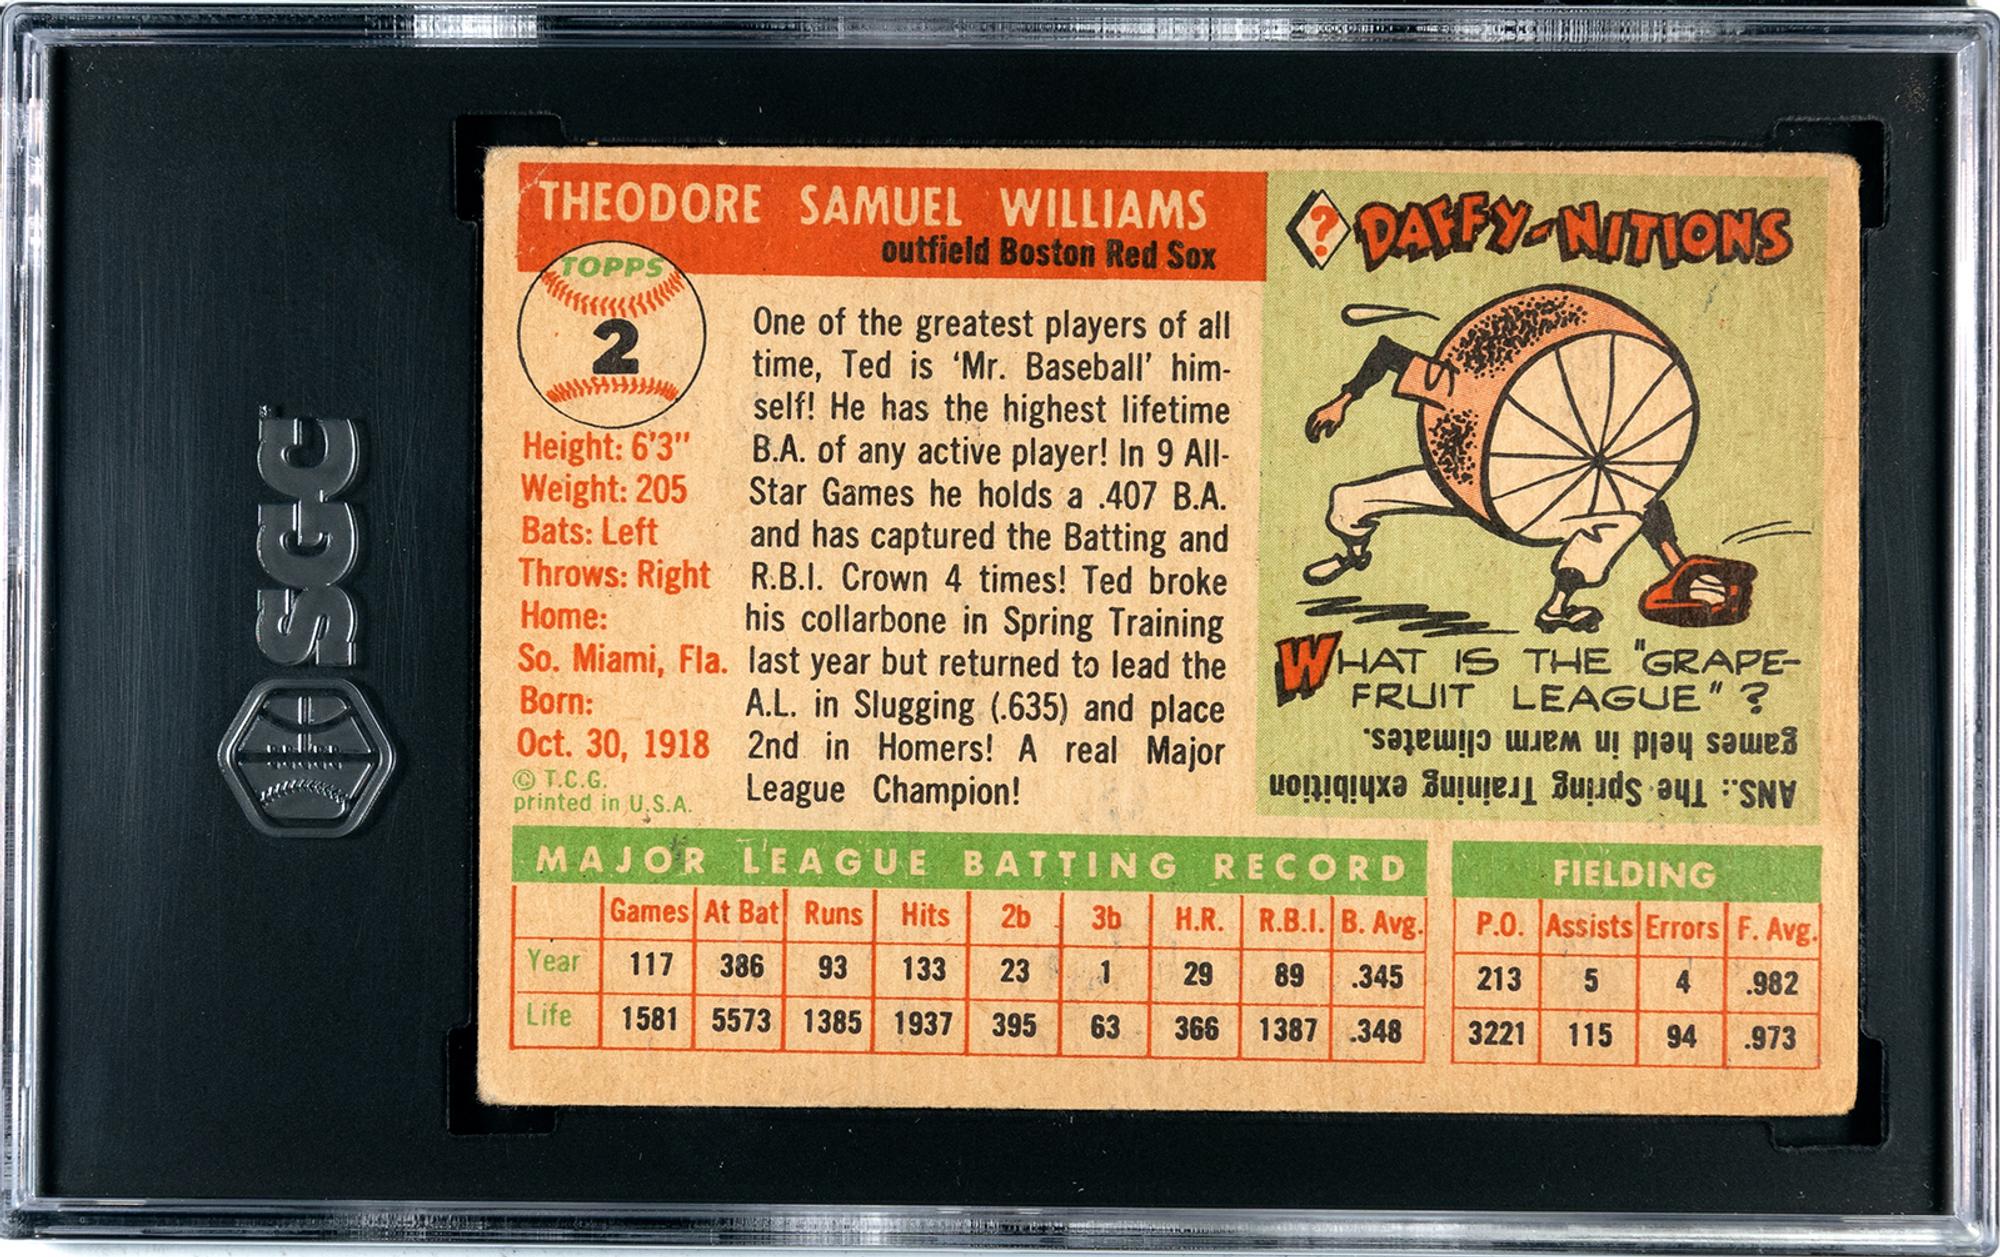 SGC
THEODORE SAMUEL WILLIAMS
outfield Boston Red Sox
TOPPS
2
Height: 6'3"
Weight: 205
Bats: Left
Throws: Right
Home:
So. Miami, Fla.
Born:
Oct. 30, 1918
© T.C.G.
printed in U.S.A.
One of the greatest players of all
time, Ted is 'Mr. Baseball' him-
self! He has the highest lifetime
B.A. of any active player! In 9 All-
Star Games he holds a .407 B.A.
and has captured the Batting and
R.B.I. Crown 4 times! Ted broke
his collarbone in Spring Training
last year but returned to lead the
A.L. in Slugging (.635) and place
2nd in Homers! A real Major
League Champion!
? DAFFY-NITIONS
WHAT IS THE "GRAPE-
FRUIT LEAGUE" ?
ANS.: The Spring Training exhibition
games held in warm climates.
MAJOR LEAGUE BATTING RECORD
Games At Bat Runs Hits 2b 3b H.R. R.B.I. B. Avg.
Year 117 386 93 133 23 1 29 89 .345
Life 1581 5573 1385 1937 395 63 366 1387 .348
FIELDING
P.O. Assists Errors F. Avg.
213 5 4 .982
3221 115 94 .973